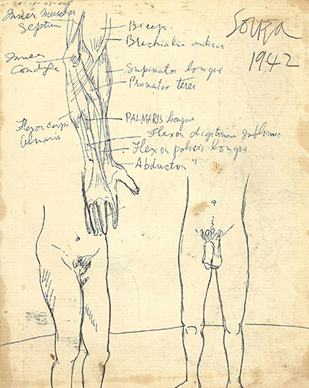 Inner Muscular
Septum
Inner
Condyle
Flexor carpi
Ulnaris
Biceps
Brachialis anticus
Supinator longus
Pronator teres
PALMARIS longus
Flexor digitorum sublimis
Flexor policis longus
Abductor "
Souza
1942